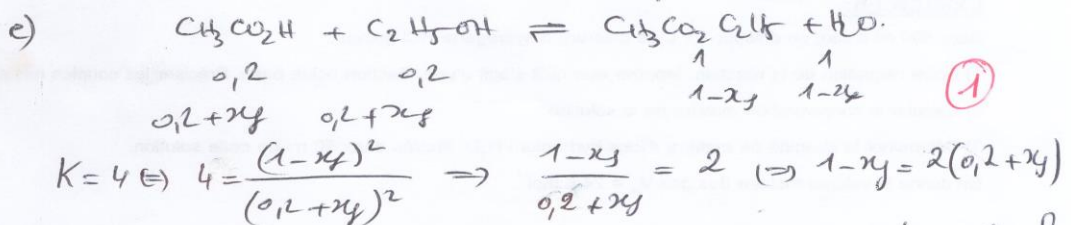 e) CH3CO2H + C2H5OH ⇌ CH3CO2C2H5 + H2O.
0,2 0,2 1 1
0,2+xf 0,2+xf 1-xf 1-xf ①
K=4 ⇔ 4 = (1-xf)²/(0,2+xf)² ⇒ (1-xf)/(0,2+xf) = 2 ⇔ 1-xf = 2(0,2+xf)